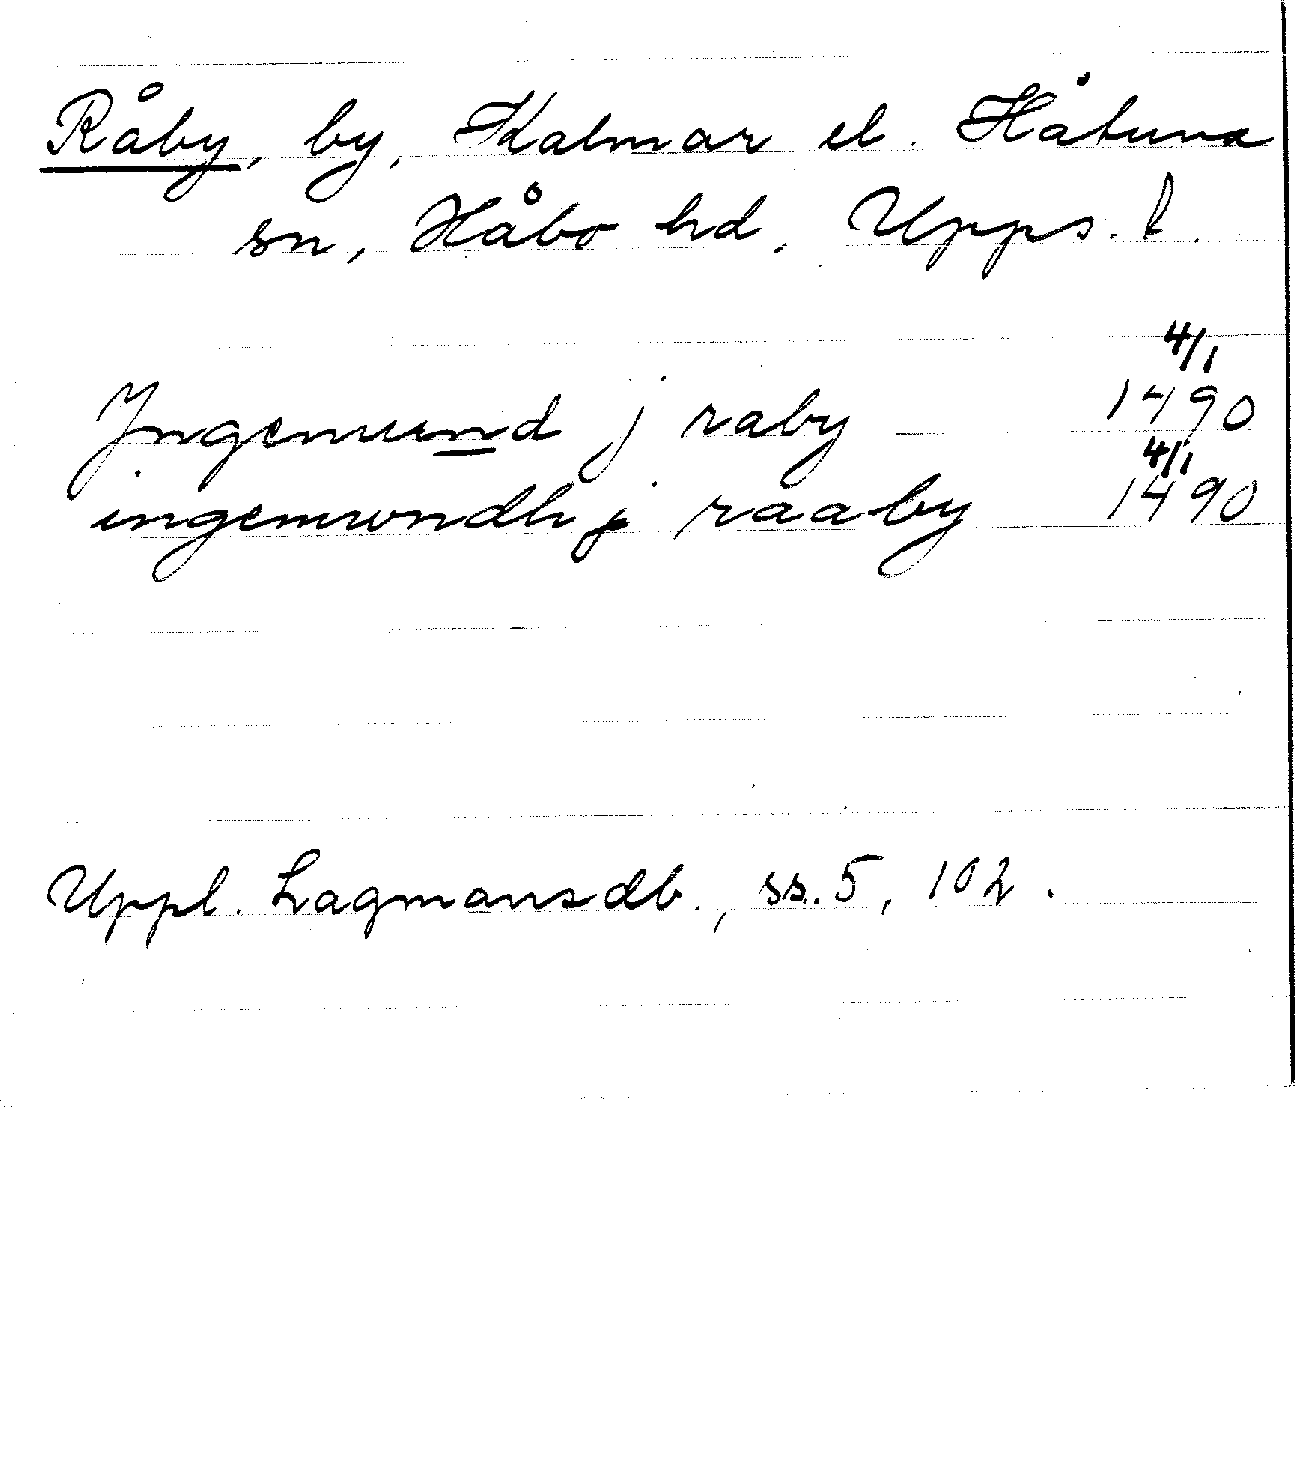 Råby, by, Kalmar el. Håtuna
sn, Håbo hd, Upps. l.
4/1
Jngemund j raby 1490
4/1
ingemwndh j raaby 1490
Uppl. Lagmansdb., ss. 5, 102.